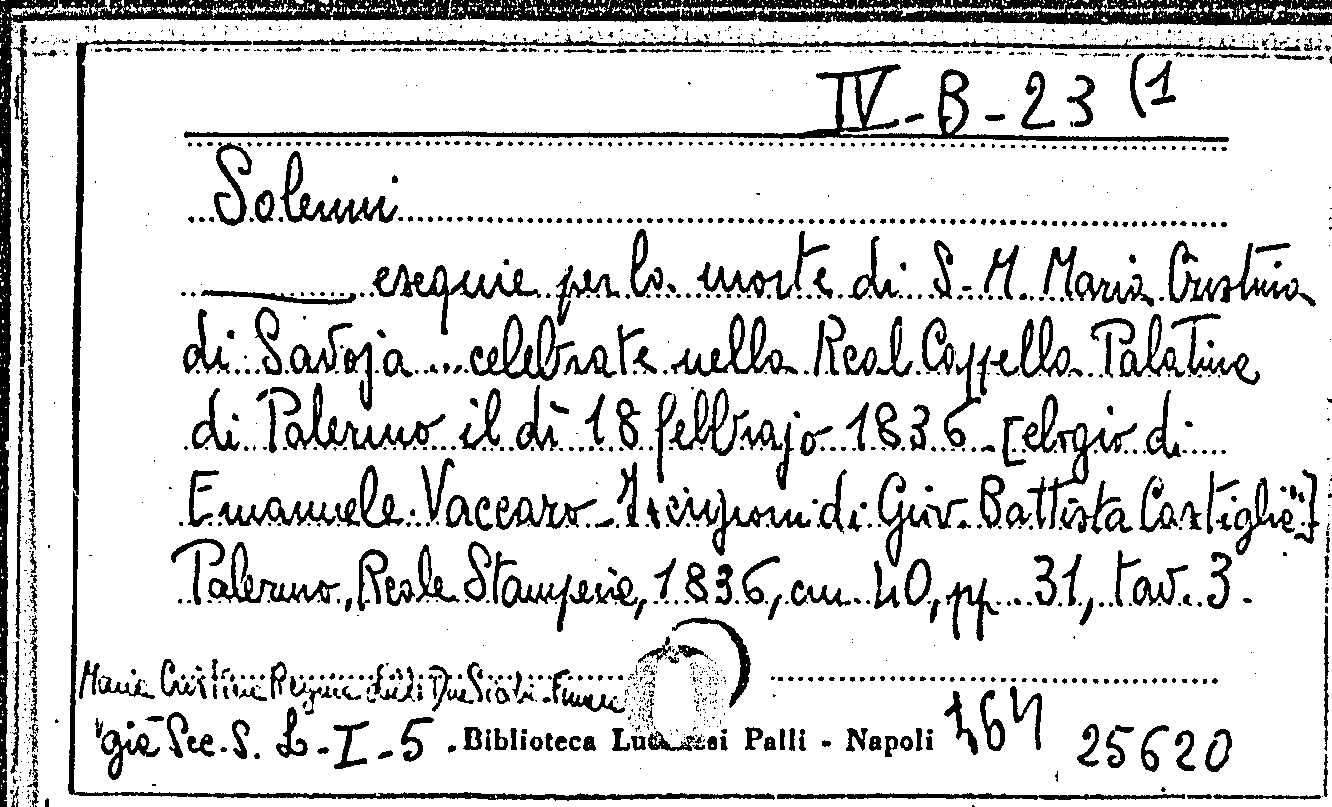 IV-B-23 (1
Solenni
esequie per la morte di S. M. Maria Cristina
di Savoja ... celebrate nella Real Cappella Palatina
di Palermo il dì 18 febbrajo 1836. [elogio di
Emanuele Vaccaro - Iscrizioni di Giov. Battista Castiglia]
Palermo, Reale Stamperia, 1836, cm. 40, pp. 31, tav. 3.
Maria Cristina Regina delle Due Sicilie
già Sec. S. L-I-5. Biblioteca Lucchesi Palli - Napoli 164 25620